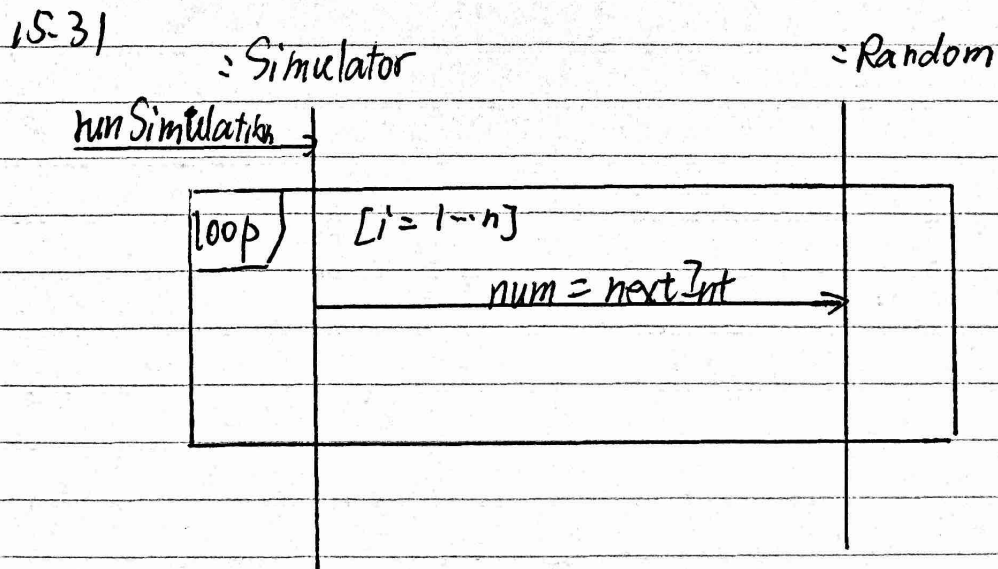 15-31
: Simulator
: Random
run Simulation
loop
[i = 1...n]
num = next Int